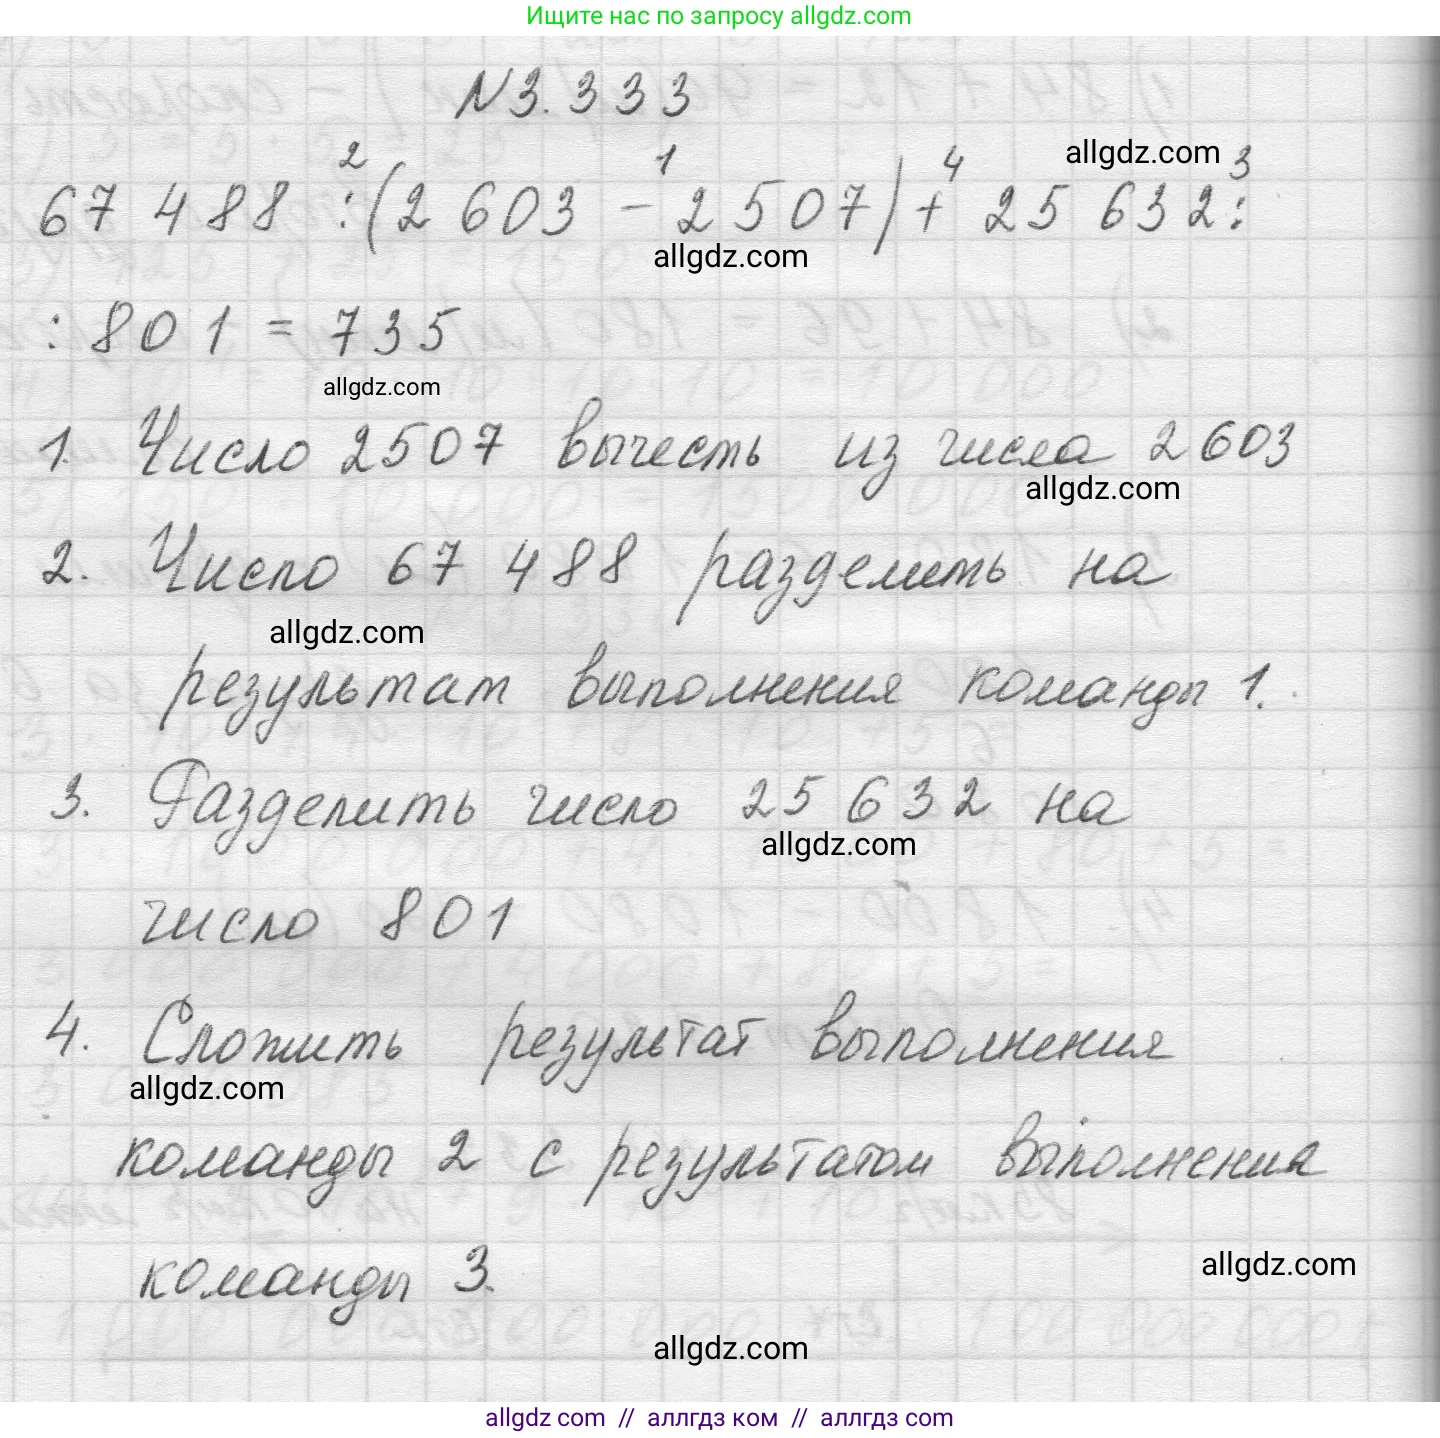 Ищите нас по запросу allgdz.com
N3.333
allgdz.com
2 1 4 3
67 488 : (2 603 - 2 507) + 25 632 :
allgdz.com
: 801 = 735
allgdz.com
1. Число 2507 вычесть из числа 2 603
allgdz.com
2. Число 67 488 разделить на
allgdz.com
результат выполнения команды 1.
3. Разделить число 25 632 на
allgdz.com
число 801
4. Сложить результат выполнения
allgdz.com
команды 2 с результатом выполнения
команды 3.
allgdz.com
allgdz.com
allgdz com // аллгдз ком // аллгдз com